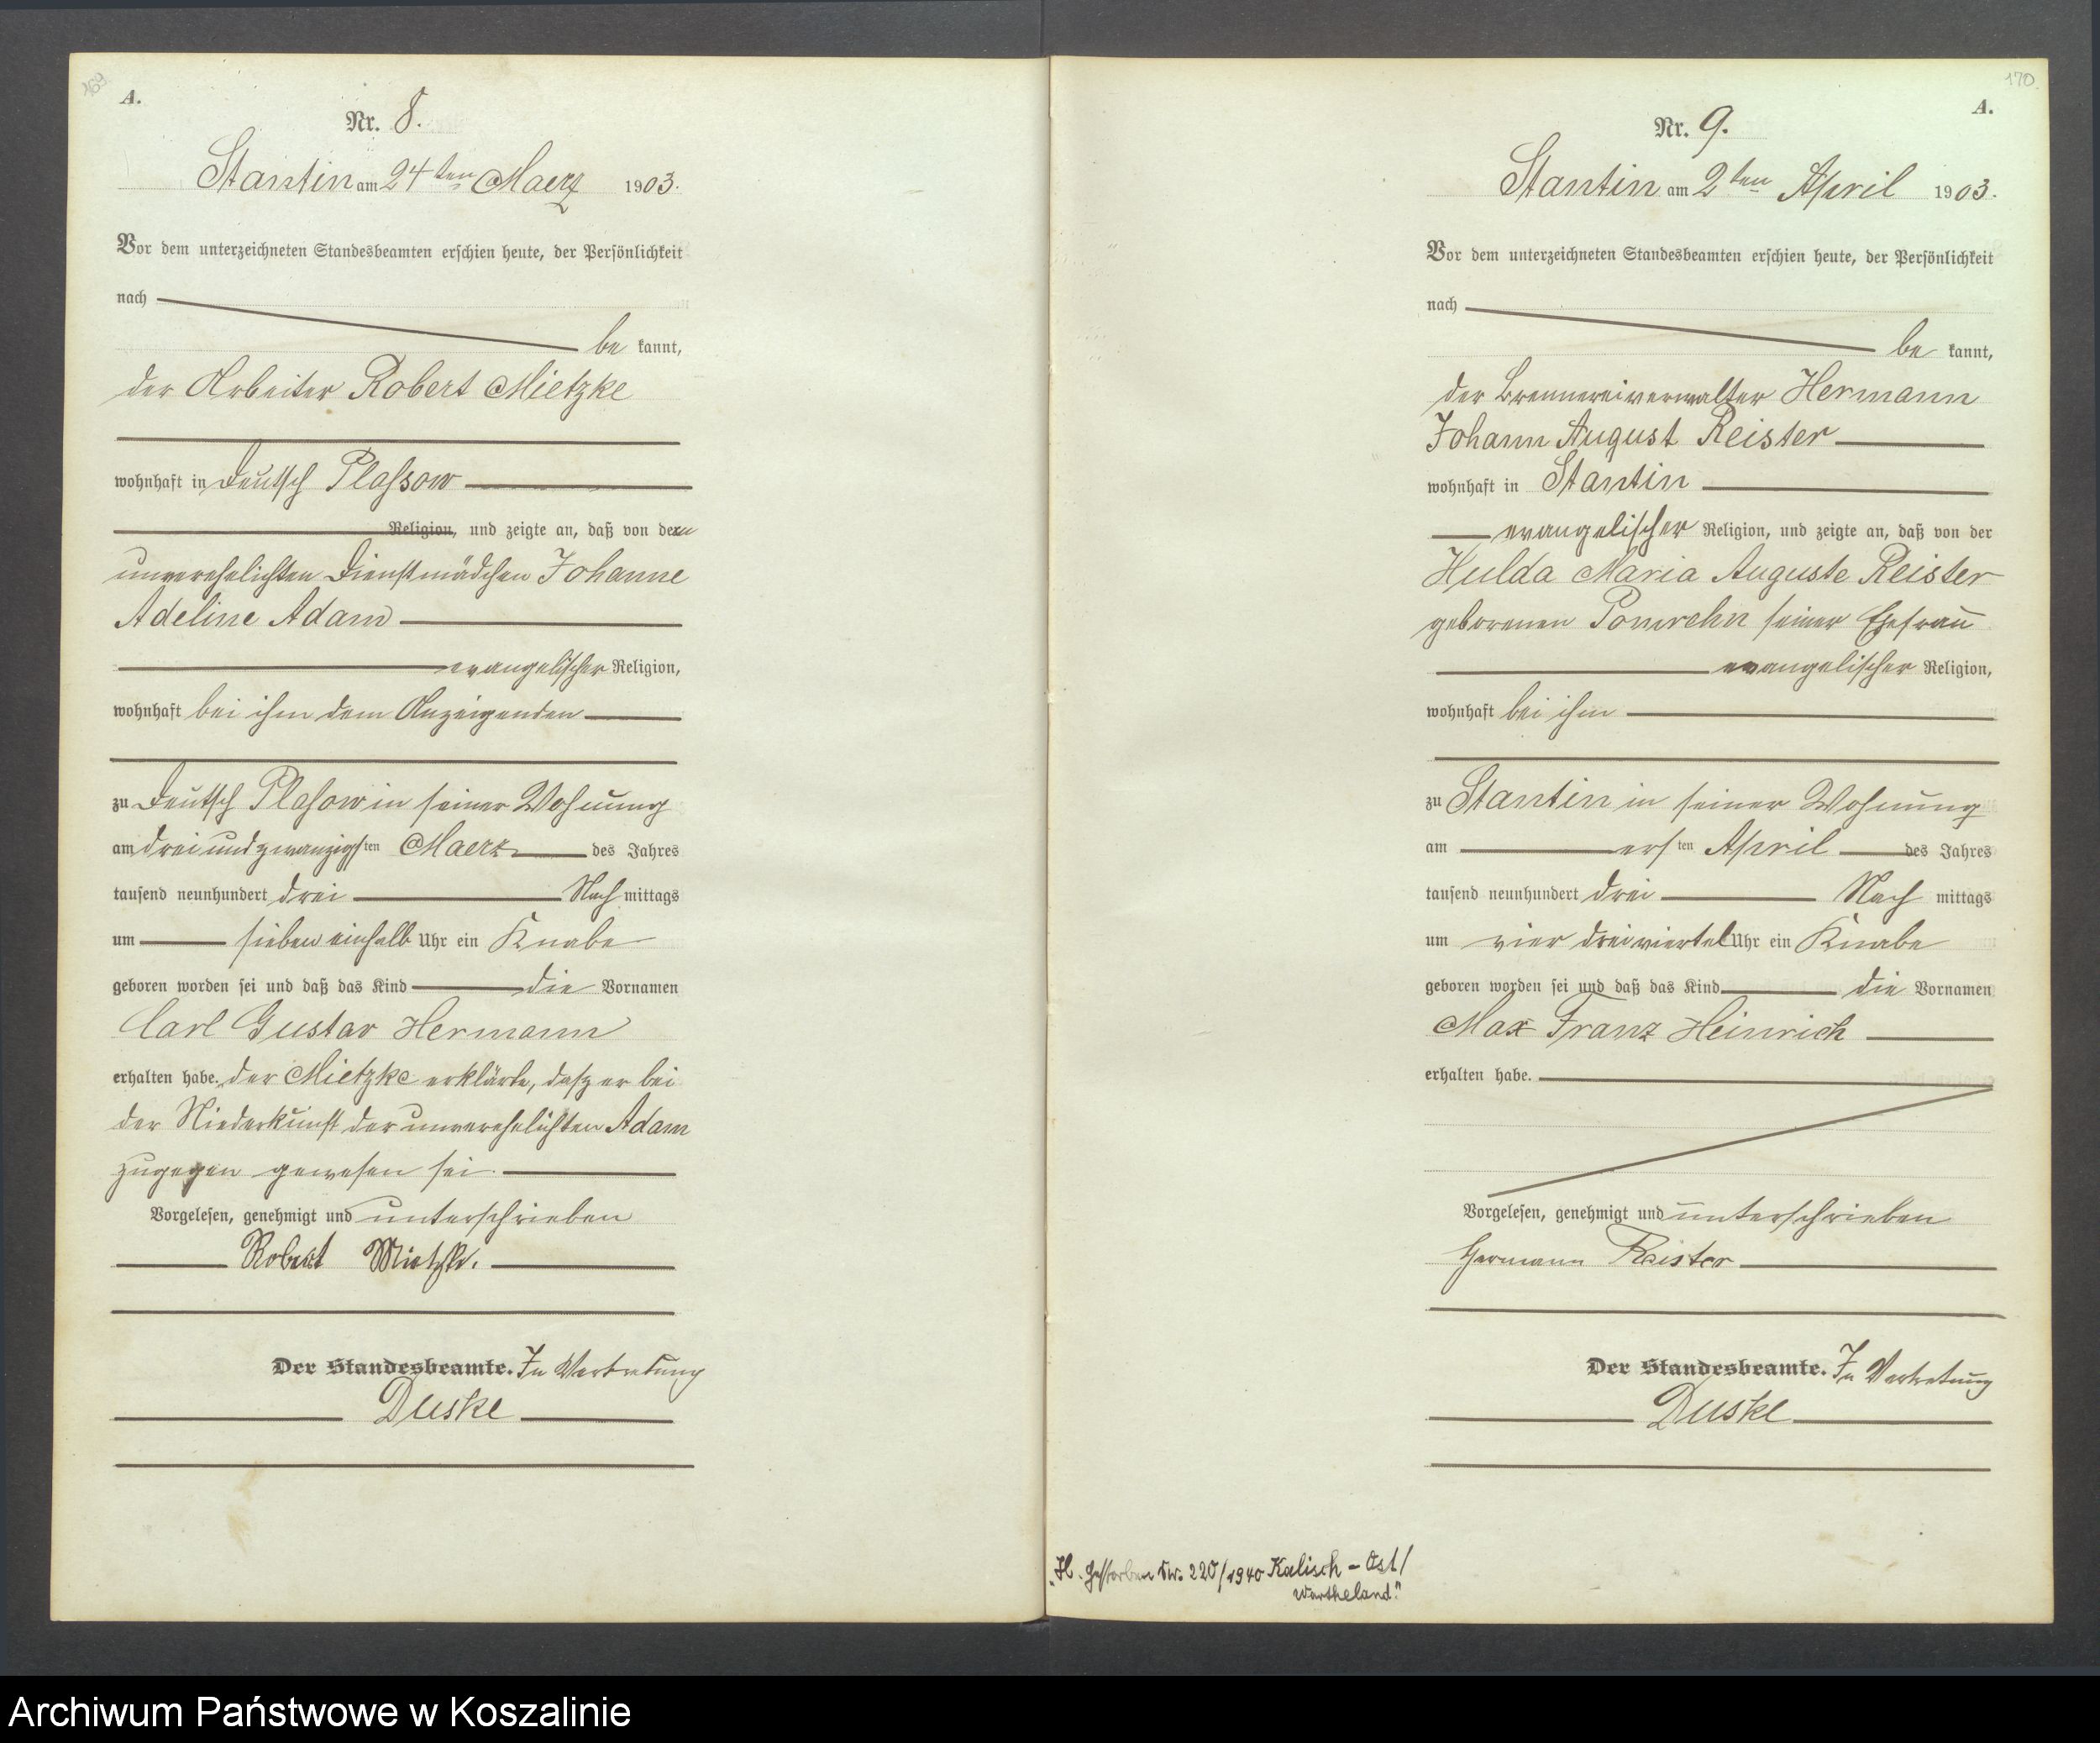 169
A.
Nr. 8.
Stantin am 24ten Maerz 1903.
Vor dem unterzeichneten Standesbeamten erschien heute, der Persönlichkeit
nach
be kannt,
der Arbeiter Robert Mietzke
wohnhaft in Deutsch Plassow
Religion, und zeigte an, daß von der
unverehelichten Dienstmädchen Johanne
Adeline Adam
evangelischer Religion,
wohnhaft bei ihm dem Anzeigenden
zu Deutsch Plassow in seiner Wohnung
am drei und zwanzigsten Maerz des Jahres
tausend neunhundert drei Nach mittags
um sieben einhalb Uhr ein Knabe
geboren worden sei und daß das Kind die Vornamen
Carl Gustav Hermann
erhalten habe. der Mietzke erklärte, dasz er bei
der Niederkunft der unverehelichten Adam
zugegen gewesen sei.
Vorgelesen, genehmigt und unterschrieben
Robert Mietzke.
Der Standesbeamte. In Vertretung
Duske
170
A.
Nr. 9.
Stantin am 2ten April 1903.
Vor dem unterzeichneten Standesbeamten erschien heute, der Persönlichkeit
nach
be kannt,
der Brennereiverwalter Hermann
Johann August Reister
wohnhaft in Stantin
evangelischer Religion, und zeigte an, daß von der
Hulda Maria Auguste Reister
geborenen Pomrehn seiner Ehefrau
evangelischer Religion,
wohnhaft bei ihm
zu Stantin in seiner Wohnung
am ersten April des Jahres
tausend neunhundert drei Nach mittags
um vier dreiviertel Uhr ein Knabe
geboren worden sei und daß das Kind die Vornamen
Max Franz Heinrich
erhalten habe.
Vorgelesen, genehmigt und unterschrieben
Hermann Reister
Der Standesbeamte. In Vertretung
Duske
gestorben Nr. 220/1940 Kalisch - Ost/
Wartheland."
Archiwum Państwowe w Koszalinie